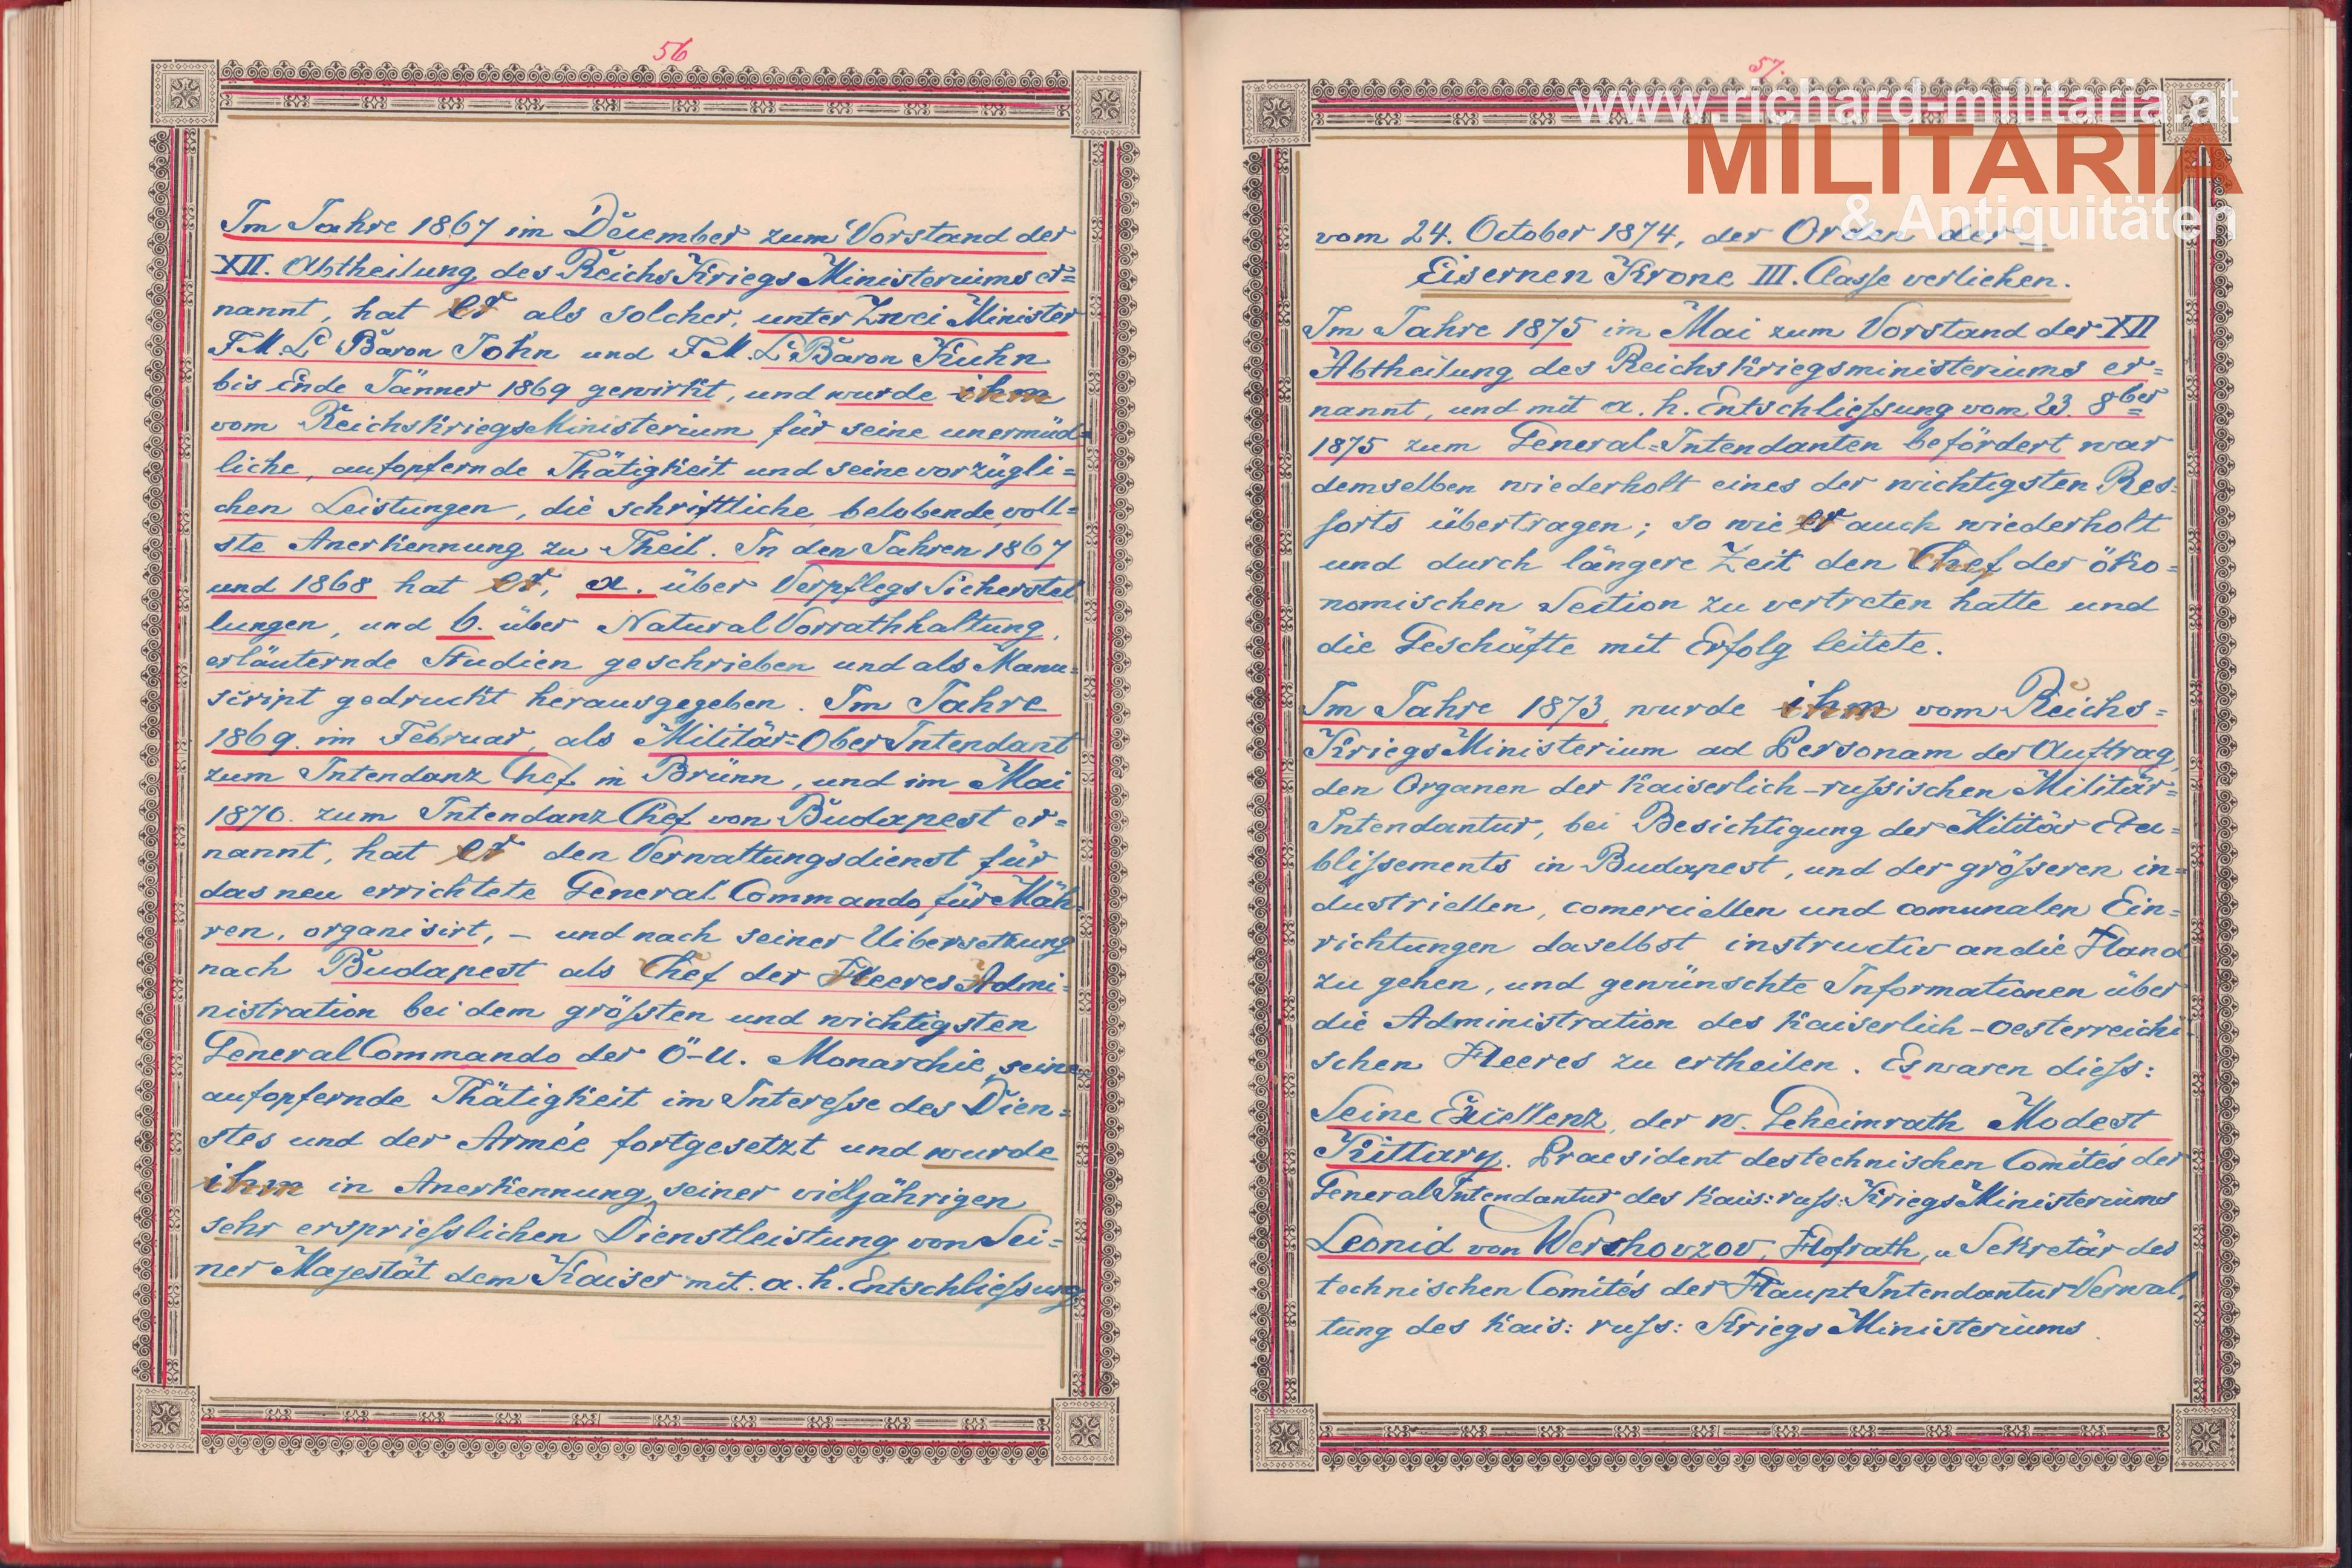 56
Im Jahre 1867 im December zum Vorstand der
XII. Abtheilung des Reichs Kriegs Ministeriums er=
nannt, hat er als solcher, unter Zwei Minister
F.M.L. Baron John und F.M.L. Baron Kuhn
bis Ende Jänner 1869 gewirkt, und wurde ihm
vom Reichs Kriegs Ministerium für seine unermüd=
liche, aufopfernde Thätigkeit und seine vorzügli=
chen Leistungen, die schriftliche belobende voll=
ste Anerkennung zu Theil. In den Jahren 1867
und 1868 hat er, a. über Verpflegs Sicherstel
lungen, und b. über Natural Vorrathhaltung,
erläuternde Studien geschrieben und als Manu=
script gedruckt herausgegeben. Im Jahre
1869. im Februar, als Militär=Ober Intendant
zum Intendanz Chef in Brünn, und im Mai
1870. zum Intendanz Chef von Budapest er=
nannt, hat er den Verwaltungsdienst für
das neu errichtete General Commando für Mäh
ren, organisirt, – und nach seiner Uibersetzung
nach Budapest als Chef der Heeres Admi=
nistration bei dem größten und wichtigsten
General Commando der Ö-U. Monarchie, seine
aufopfernde Thätigkeit im Interesse des Dien=
stes und der Armée fortgesetzt und wurde
ihm in Anerkennung seiner vieljährigen
sehr ersprießlichen Dienstleistung von Sei=
ner Majestät dem Kaiser mit. a. h. Entschließung
57.
vom 24. October 1874, der Orden der
Eisernen Krone III. Classe verliehen.
Im Jahre 1875 im Mai zum Vorstand der XII
Abtheilung des Reichskriegsministeriums er=
nannt, und mit a. h. Entschließung vom 23. 8ber
1875 zum General=Intendanten befördert war
demselben wiederholt eines der wichtigsten Res=
sorts übertragen; so wie er auch wiederholt
und durch längere Zeit den Chef der öko=
nomischen Section zu vertreten hatte und
die Geschäfte mit Erfolg leitete.
Im Jahre 1873, wurde ihm vom Reichs=
Kriegs Ministerium ad Personam der Auftrag,
den Organen der Kaiserlich-russischen Militär=
Intendantur, bei Besichtigung der Militär Eta=
blissements in Budapest, und der größeren in=
dustriellen, comerciellen und comunalen Ein=
richtungen daselbst instructiv an die Hand
zu gehen, und gewünschte Informationen über
die Administration des Kaiserlich-oesterreichi
schen Heeres zu ertheilen. Es waren dieß:
Seine Excellenz, der w. Geheimrath Modest
Kittary. Praesident des technischen Comités der
General Intendantur des Kais: russ: Kriegs Ministeriums
Leonid von Werchovzov, Hofrath, u Sekretär des
technischen Comités der Haupt Intendantur Verwal.
tung des Kais: russ: Kriegs Ministeriums.
www.richard-militaria.at
MILITARIA
& Antiquitäten